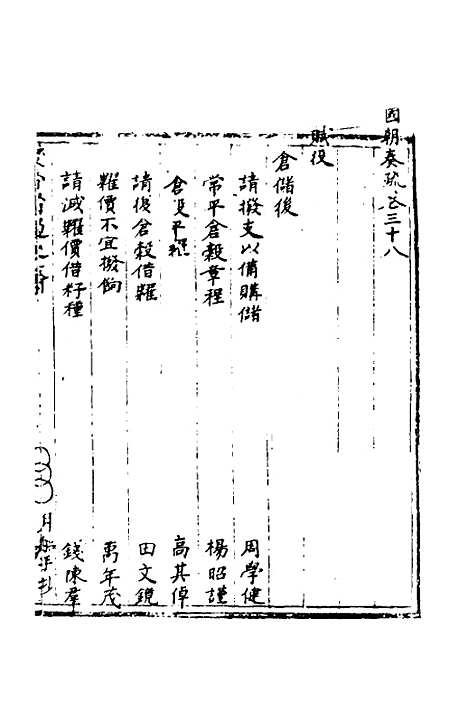 國朝奏疏卷三十八
賦役
倉儲後
請撥支以備購儲 周學健
常平倉穀章程 楊昭謹
倉穀平糶 高其倬
請復倉穀借糶 田文鏡
糶價不宜撥餉 萬年茂
請減糶價借籽種 錢陳羣